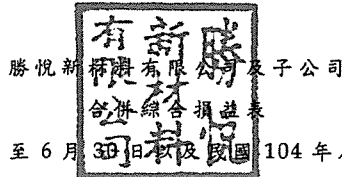 勝悅新材料有限公司及子公司
合併綜合損益表
至 6 月 30 日以及民國 104 年
勝悅
新材料
有限公司